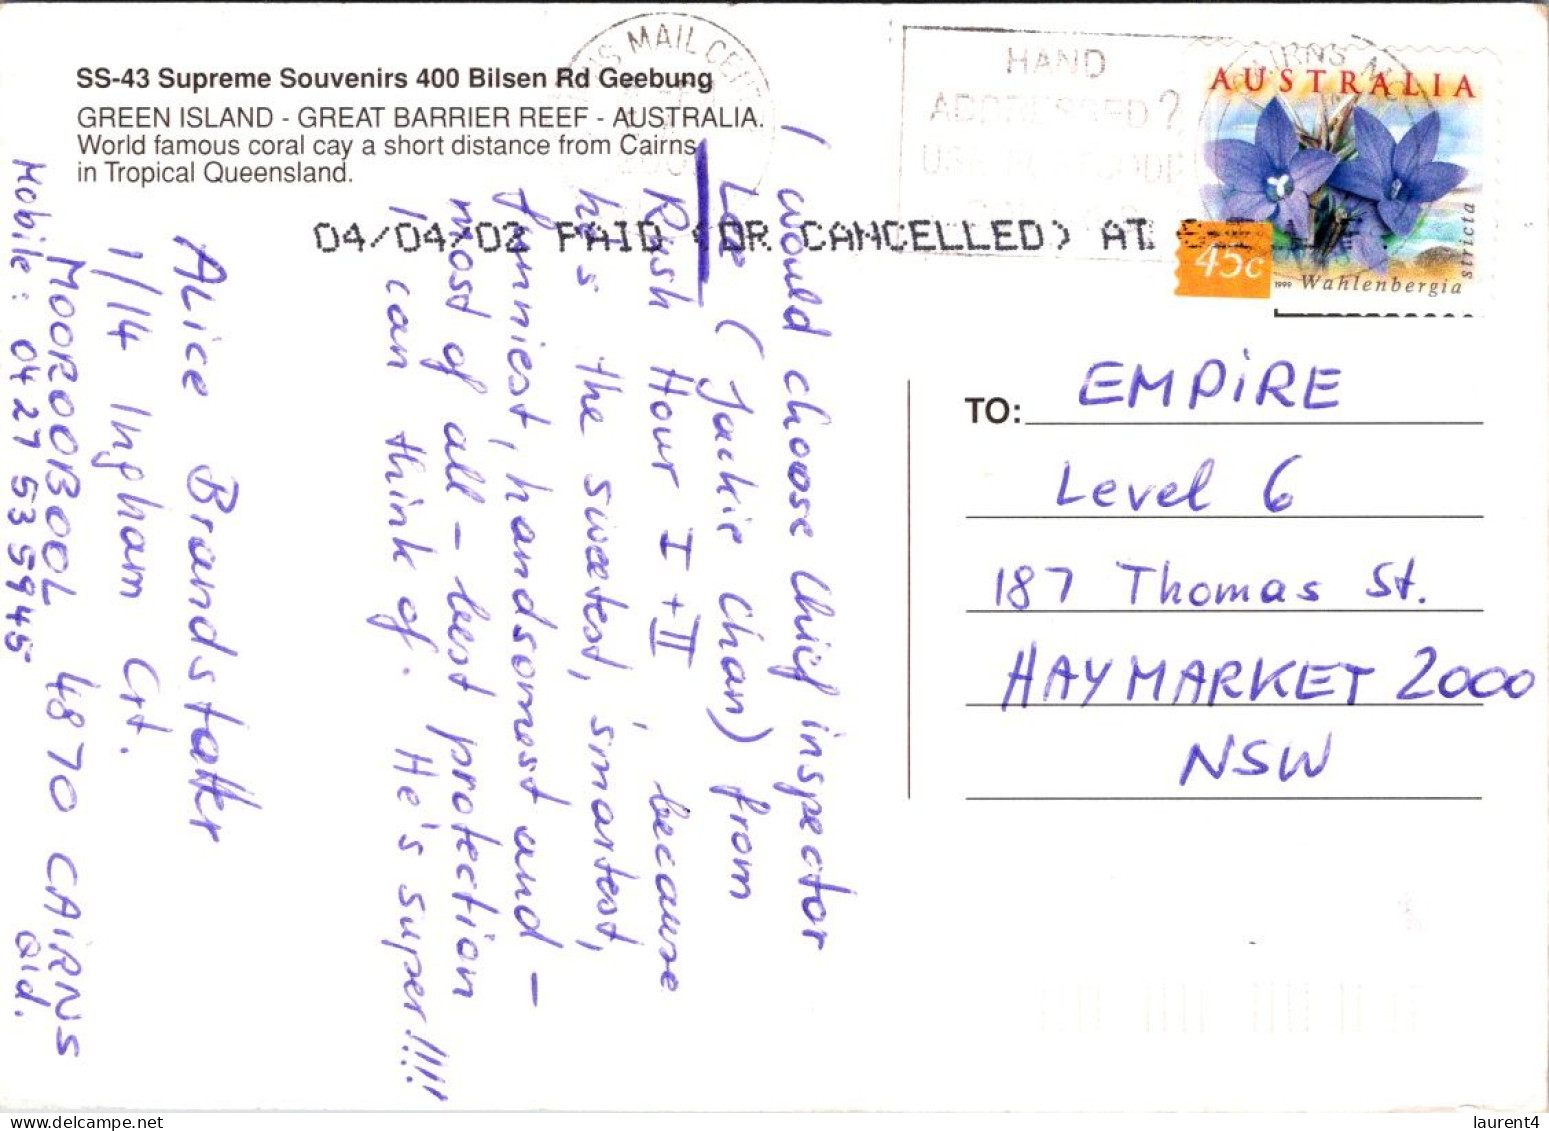 SS-43 Supreme Souvenirs 400 Bilsen Rd Geebung
GREEN ISLAND - GREAT BARRIER REEF - AUSTRALIA.
World famous coral cay a short distance from Cairns
in Tropical Queensland.
MAIL
HAND
ADDRESSED?
USE
CAIRNS
AUSTRALIA
45c
1999 Wahlenbergia
stricta
04/04/02 PAID (OR CANCELLED) AT
I would choose Chief inspector
Lee (Jackie Chan) from
Rush Hour I + II because
he's the sweetest, smartest,
funniest, handsomest and -
most of all - best protection
I can think of. He's super!!!!
Alice Brandstätter
1/14 Ingham Crt.
MOOROOBOOL 4870 CAIRNS
Mobile: 0427 535945 Qld.
TO: EMPIRE
Level 6
187 Thomas St.
HAYMARKET 2000
NSW
laurent4